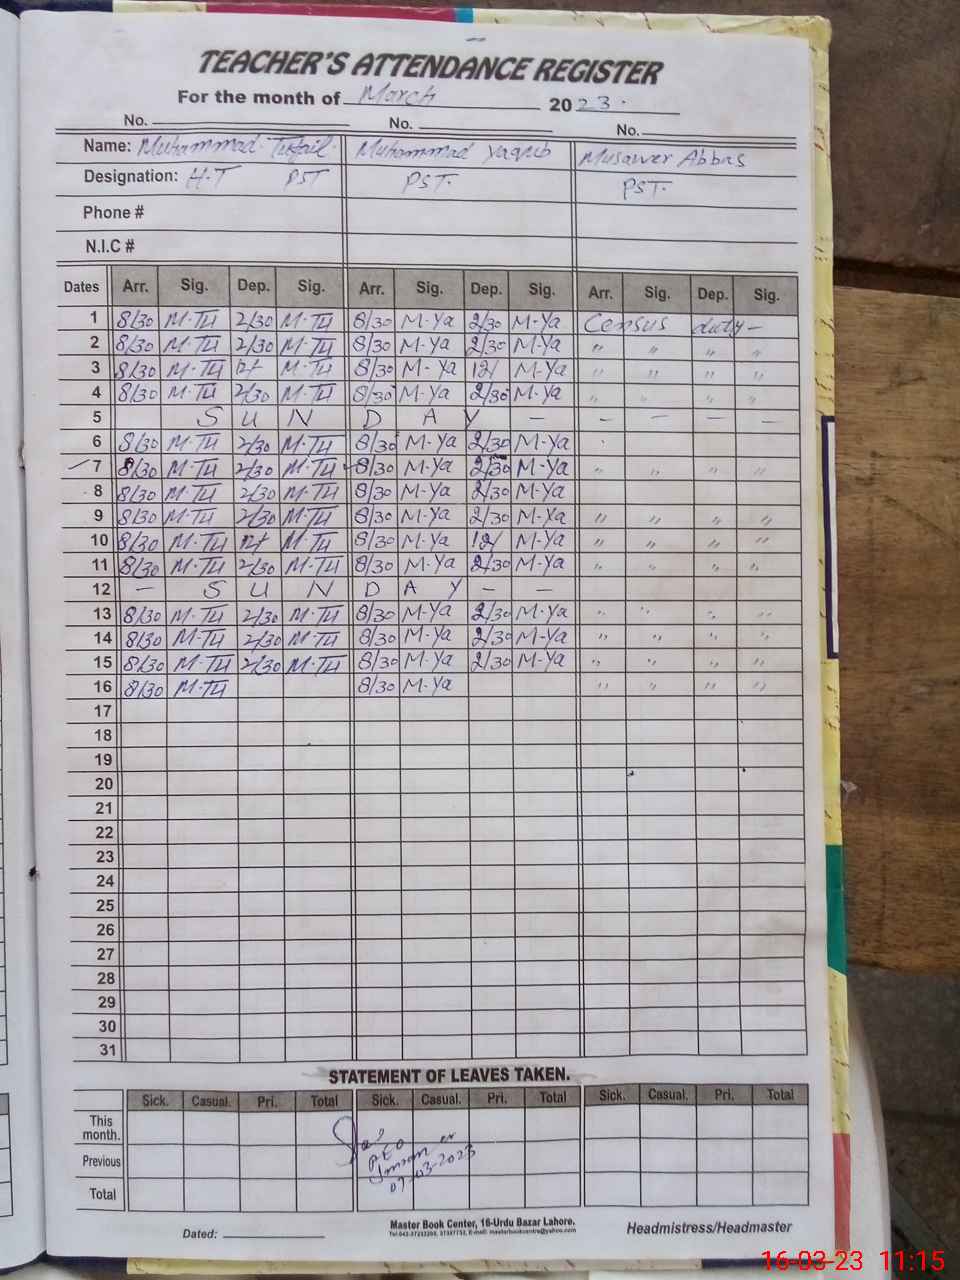 TEACHER'S ATTENDANCE REGISTER
For the month of March 2023.
No. No. No.
Name: Muhammad Tufail Muhammad Yaqub Musawer Abbas
Designation: H.T PST PST. PST.
Phone #
N.I.C #
Dates Arr. Sig. Dep. Sig. Arr. Sig. Dep. Sig. Arr. Sig. Dep. Sig.
1 8/30 M-Tu 2/30 M-Tu 8/30 M-Ya 2/30 M-Ya Census duty -
2 8/30 M-Tu 2/30 M-Tu 8/30 M-Ya 2/30 M-Ya " " " "
3 8/30 M-Tu 12/ M-Tu 8/30 M-Ya 12/ M-Ya " " " "
4 8/30 M-Tu 2/30 M-Tu 8/30 M-Ya 2/30 M-Ya " " " "
5 S U N D A Y - - - - -
6 8/30 M-Tu 2/30 M-Tu 8/30 M-Ya 2/30 M-Ya
7 8/30 M-Tu 2/30 M-Tu 8/30 M-Ya 2/30 M-Ya " " " "
8 8/30 M-Tu 2/30 M-Tu 8/30 M-Ya 2/30 M-Ya
9 8/30 M-Tu 2/30 M-Tu 8/30 M-Ya 2/30 M-Ya " " " "
10 8/30 M-Tu 12/ M-Tu 8/30 M-Ya 12/ M-Ya " " " "
11 8/30 M-Tu 2/30 M-Tu 8/30 M-Ya 2/30 M-Ya " " " "
12 - S U N D A Y - -
13 8/30 M-Tu 2/30 M-Tu 8/30 M-Ya 2/30 M-Ya " " " "
14 8/30 M-Tu 2/30 M-Tu 8/30 M-Ya 2/30 M-Ya " " " "
15 8/30 M-Tu 2/30 M-Tu 8/30 M-Ya 2/30 M-Ya " " " "
16 8/30 M-Tu 8/30 M-Ya " " " "
17
18
19
20
21
22
23
24
25
26
27
28
29
30
31
STATEMENT OF LEAVES TAKEN.
Sick. Casual. Pri. Total Sick. Casual. Pri. Total Sick. Casual. Pri. Total
This month.
Previous
Total
07-03-2023
Dated: Master Book Center, 16-Urdu Bazar Lahore. Headmistress/Headmaster
16-03-23 11:15